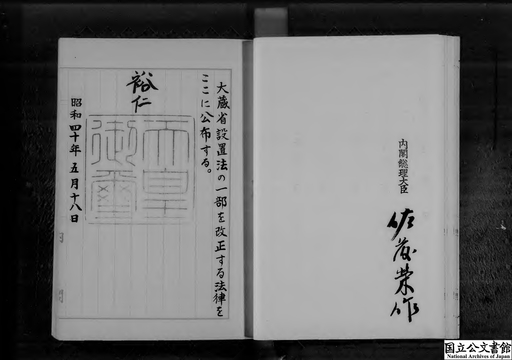 大蔵省設置法の一部を改正する法律を
ここに公布する。
裕仁
天皇
御璽
昭和四十年五月十八日
内閣総理大臣
佐藤栄作
国立公文書館
National Archives of Japan